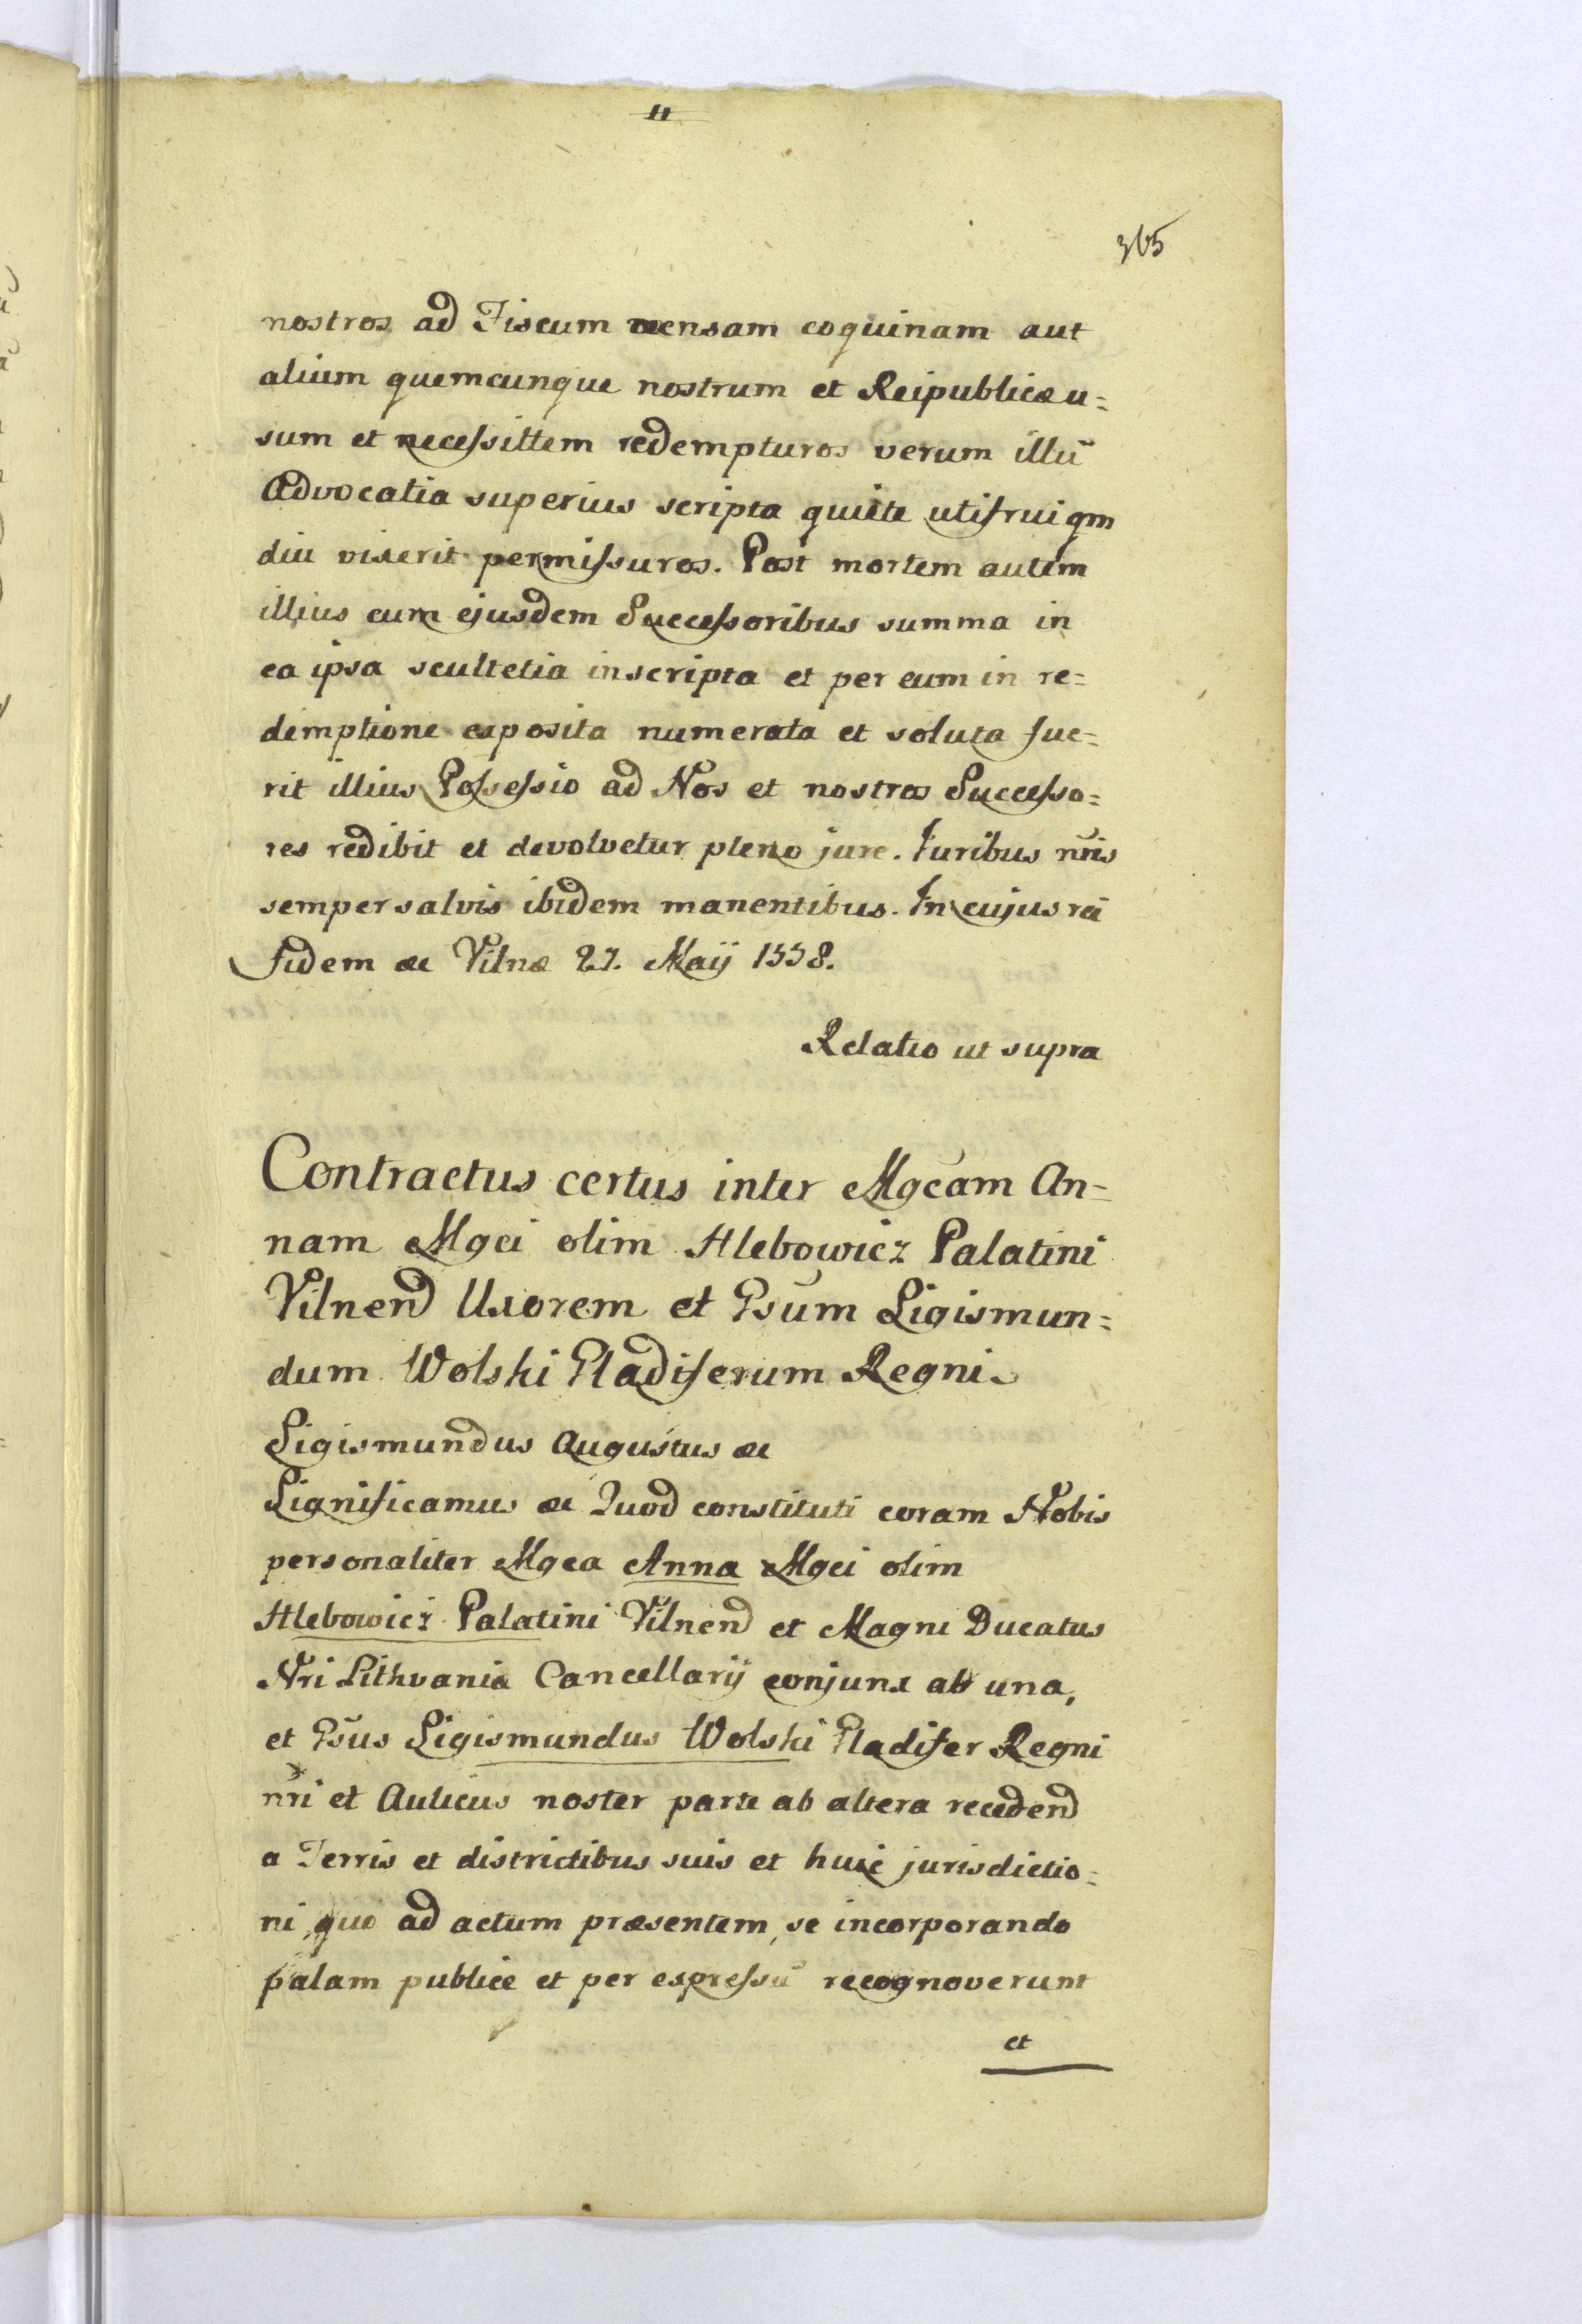 11
365
nostros ad Fiscum mensam coquinam aut
alium quemcunque nostrum et Reipublicæ u=
sum et necessittem redempturos verum illũ
Advocatia superius scripta quiete utifrui qm
diu vixerit permissuros. Post mortem autem
illius cum ejusdem Successoribus summa in
ea ipsa scultetia inscripta et per eum in re=
demptione exposita numerata et soluta fue=
rit illius Possessio ad Nos et nostros Successo=
res redibit et devolvetur pleno jure. Juribus nr̃is
semper salvis ibidem manentibus. In cujus rei
fidem &c Vilnæ 27. Maij 1558.
Relatio ut supra
Contractus certus inter Mgcam An=
nam Mgci olim Hlebowicz Palatini
Vilnend Uxorem et Gsum Sigismun=
dum Wolski Gladiferum Regni.
Sigismundus Augustus &c
Significamus &c Quod constituti coram Nobis
personaliter Mgca Anna Mgci olim
Hlebowicz Palatini Vilnend et Magni Ducatus
Nri Lithvania Cancellarij conjunx ab una,
et Gsus Sigismundus Wolski Gladifer Regni
nri et Aulicus noster parte ab altera recedend
a Terris et districtibus suis et huic jurisdictio=
ni quo ad actum præsentem, se incorporando
palam publice et per expressũ recognoverunt
et